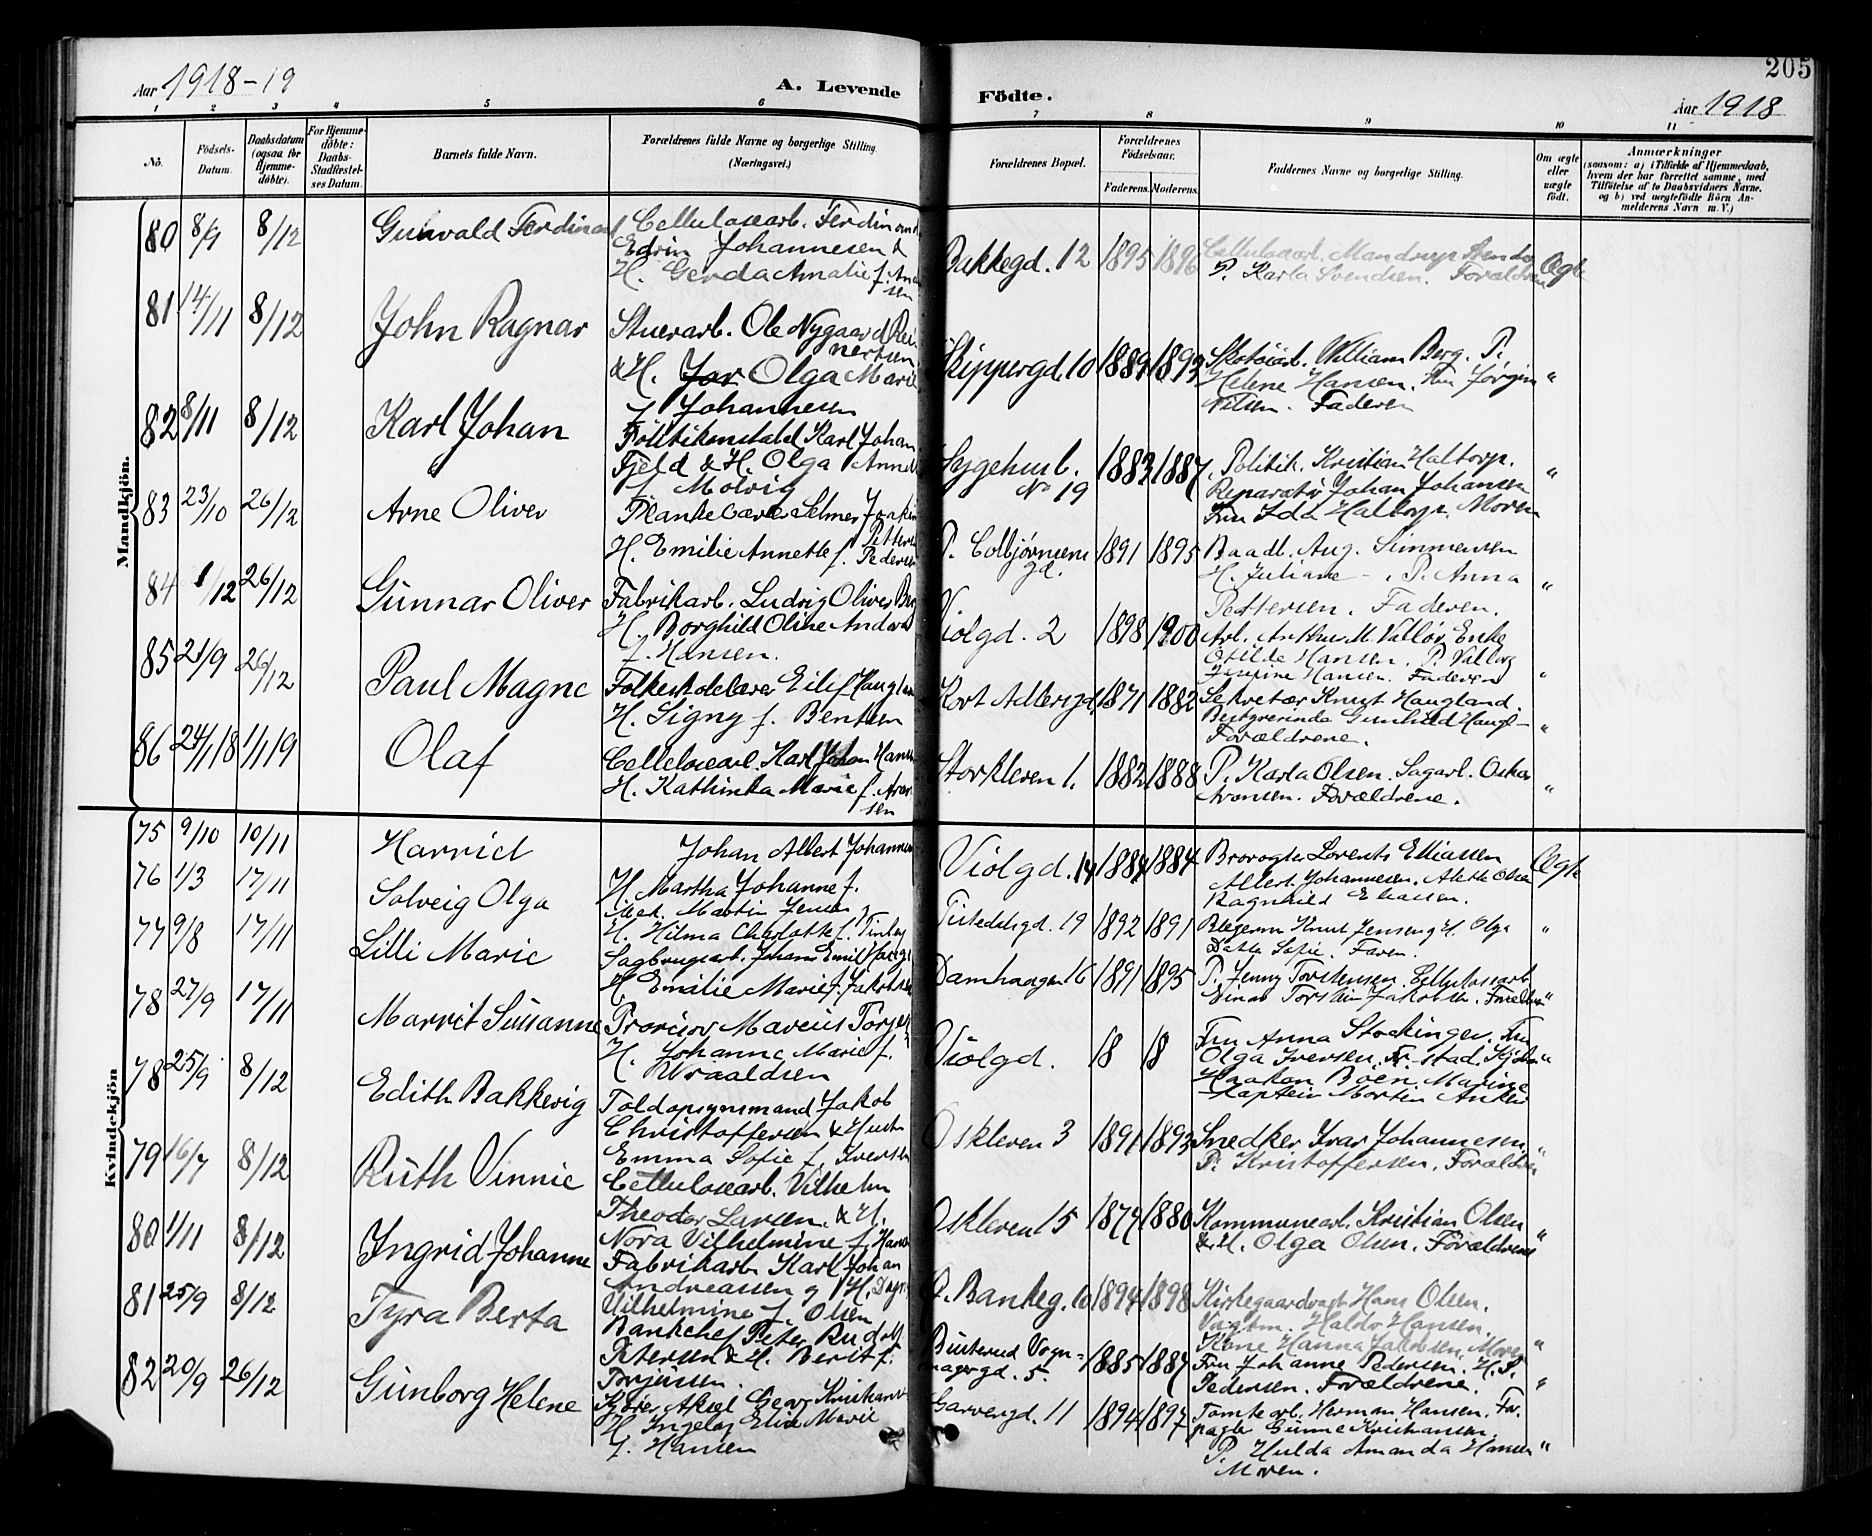 Aar 1918-19
A. Levende
Födte.
205
Aar 1918
1 2 3 4 5 6 7 8 9 10 11
No.
Födsels-Datum.
Daabsdatum (ogsaa for Hjemmedöbte).
For Hjemmedöbte: Daabs-Stadfæstelses Datum.
Barnets fulde Navn.
Forældrenes fulde Navne og borgerlige Stilling (Næringsvei.)
Forældrenes Bopæl.
Forældrenes Födselsaar.
Faderens. Moderens.
Faddernes Navne og borgerlige Stilling.
Om ægte eller uægte födt.
Anmærkninger
(saasom: a) i Tilfælde af Hjemmedaab, hvem der har forrettet samme, med Tilföielse af to Daabsvidners Navne. og b) ved uægtefödte Börn Anmelderens Navn m. V.)
Mandkjön.
80 8/9 8/12 Gunvald Ferdinand
Cellulosearb. Ferdinand
Edvin Johannesen &
H. Gerda Amalie f.
Bakkegd. 12 1895 1896
P. Karla Svendsen. Forældrene Ægte
81 14/11 8/12 John Ragnar
Stuerarb. Ole Nygaard Reinertsen
& H. Olga Marie
f. Johannesen
Skippergd. 10 1889 1893
William Berg. P.
Helene Hansen. Fru Jørgine
Nilsen. Faderen "
82 8/11 8/12 Karl Johan
Politikonstabel Karl Johan
Fjeld & H. Olga Annette
f. Molvig
Sygehusb.
No 19 1883 1887
Politik. Kristian Haltorp.
Reparatør Johan Johansen
Fru Ida Haltorp. Moren "
83 23/10 26/12 Arne Oliver
Plankebærer Selmer Joakim
Petters
H. Emilie Annette f. Pedersen
P. Colbjørnsens
gd. 1891 1895
Baadb. Aug. Simmensen
H. Juliane - , P. Anna
Pettersen. Faderen. "
84 1/12 26/12 Gunnar Oliver
Fabrikarb. Ludvig Oliver
H. Borghild Oline Andora
f. Hansen.
Violgd. 2 1898 1900
Arb. Arthur M. Valløy Enke
Otilde Hansen. P. Valborg
Josefine Hansen. Faderen "
85 21/9 26/12 Paul Magne
Folkeskolelærer Eilif Haugland
H. Signy f. Bentsen
Kort Adlersgd. 1871 1882
Sekretær Knut Haugland.
Bestyrerinde Gunhild Haugl-
Forældrene. "
86 24/1 18 1/1 19 Olaf
Cellulosearb. Karl Johan Hansen
H. Kathinka Marie f. Aronsen
Storkleven 1. 1882 1888
P. Karla Olsen. Sagarb. Oskar
Aronsen. Forældrene. "
Kvindekjön
75 9/10 10/11 Harrid
Johan Albert Johannesen
H. Martha Johanne f.
Violgd. 14 1884 1884
Brovogter Lorents Elliassen
Albert Johannesen. Alette Olsen
Ragnhild Eliassen. Ægte
76 1/3 17/11 Solveig Olga
Mek. Martin Jensen
H. Hilma Charlotte f.
Tistedalsgd. 19 1892 1891
Knut Jensen & H. Olga
Dette Sofie. Faren. "
77 9/8 17/11 Lilli Marie
Sagbrugsarb. Johan Emil
H. Emilie Marie f. Jakobsen
Damhaugen 16 1891 1895
P. Jenny Torstensen. Cellulosearb.
Einar Torstein Jakobsen. Forældrene "
78 27/9 17/11 Marrit Susanne
Provisor Marius
H. Johanne Marie f.
Wraaldsen
Violgd. 18 18
Fru Anna Stockinger. Fru
Olga Iversen, Fr-stad.
Haakon Böen. Marine
Kaptein Morten Anker "
78 25/9 8/12 Edith Bakkevig
Toldopsynsmand Jakob
Christoffersen & Hustr
Emma Sofie f. Iversen
Oskleven 3 1891 1893
Snedker Ivar Johannesen
P. Kristoffersen. Forældrene "
79 16/7 8/12 Ruth Vinnie
Cellulosearb. Vilhelm
Theodor Larsen. & H.
Nora Vilhelmine f. Hansen
Oskleven 15 1874 1880
Kommunearb. Kristian Olsen
& H. Olga Olsen. Forældrene "
80 1/11 8/12 Ingrid Johanne
Fabrikarb Karl Johan
Andreassen g H. Dagny
Vilhelmine f. Olsen
O. Bankeg. 10 1894 1898
Kirkegaardvogt Hans Olsen.
Vagtm. Haldo Hansen.
Kone Hanna Jakobsen. Moren "
81 25/9 8/12 Tyra Berta
Bankchef Peter Rudolf
Petersen & H. Berit f.
Busterud Vogn-
magergd. 5. 1885 1887
Fru Johanne Pedersen. H. P.
Pedersen. Forældrene. "
82 20/9 26/12 Gunborg Helene
Kjører Aksel Georg Kristians
H. Ingeborg Elise Marie
f. Hansen
Garvergd. 11 1894 1897
Tomtearb. Herman Hansen. For.
pagter Gunne Kristiansen.
P. Hulda Amanda Hansen "
Moren.